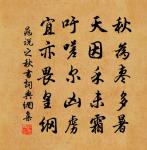 秋為棗多暑
天因禾未霜
吁嗟爾凶虜
宜亦畏皇綱
晁說之秋書詞典網集